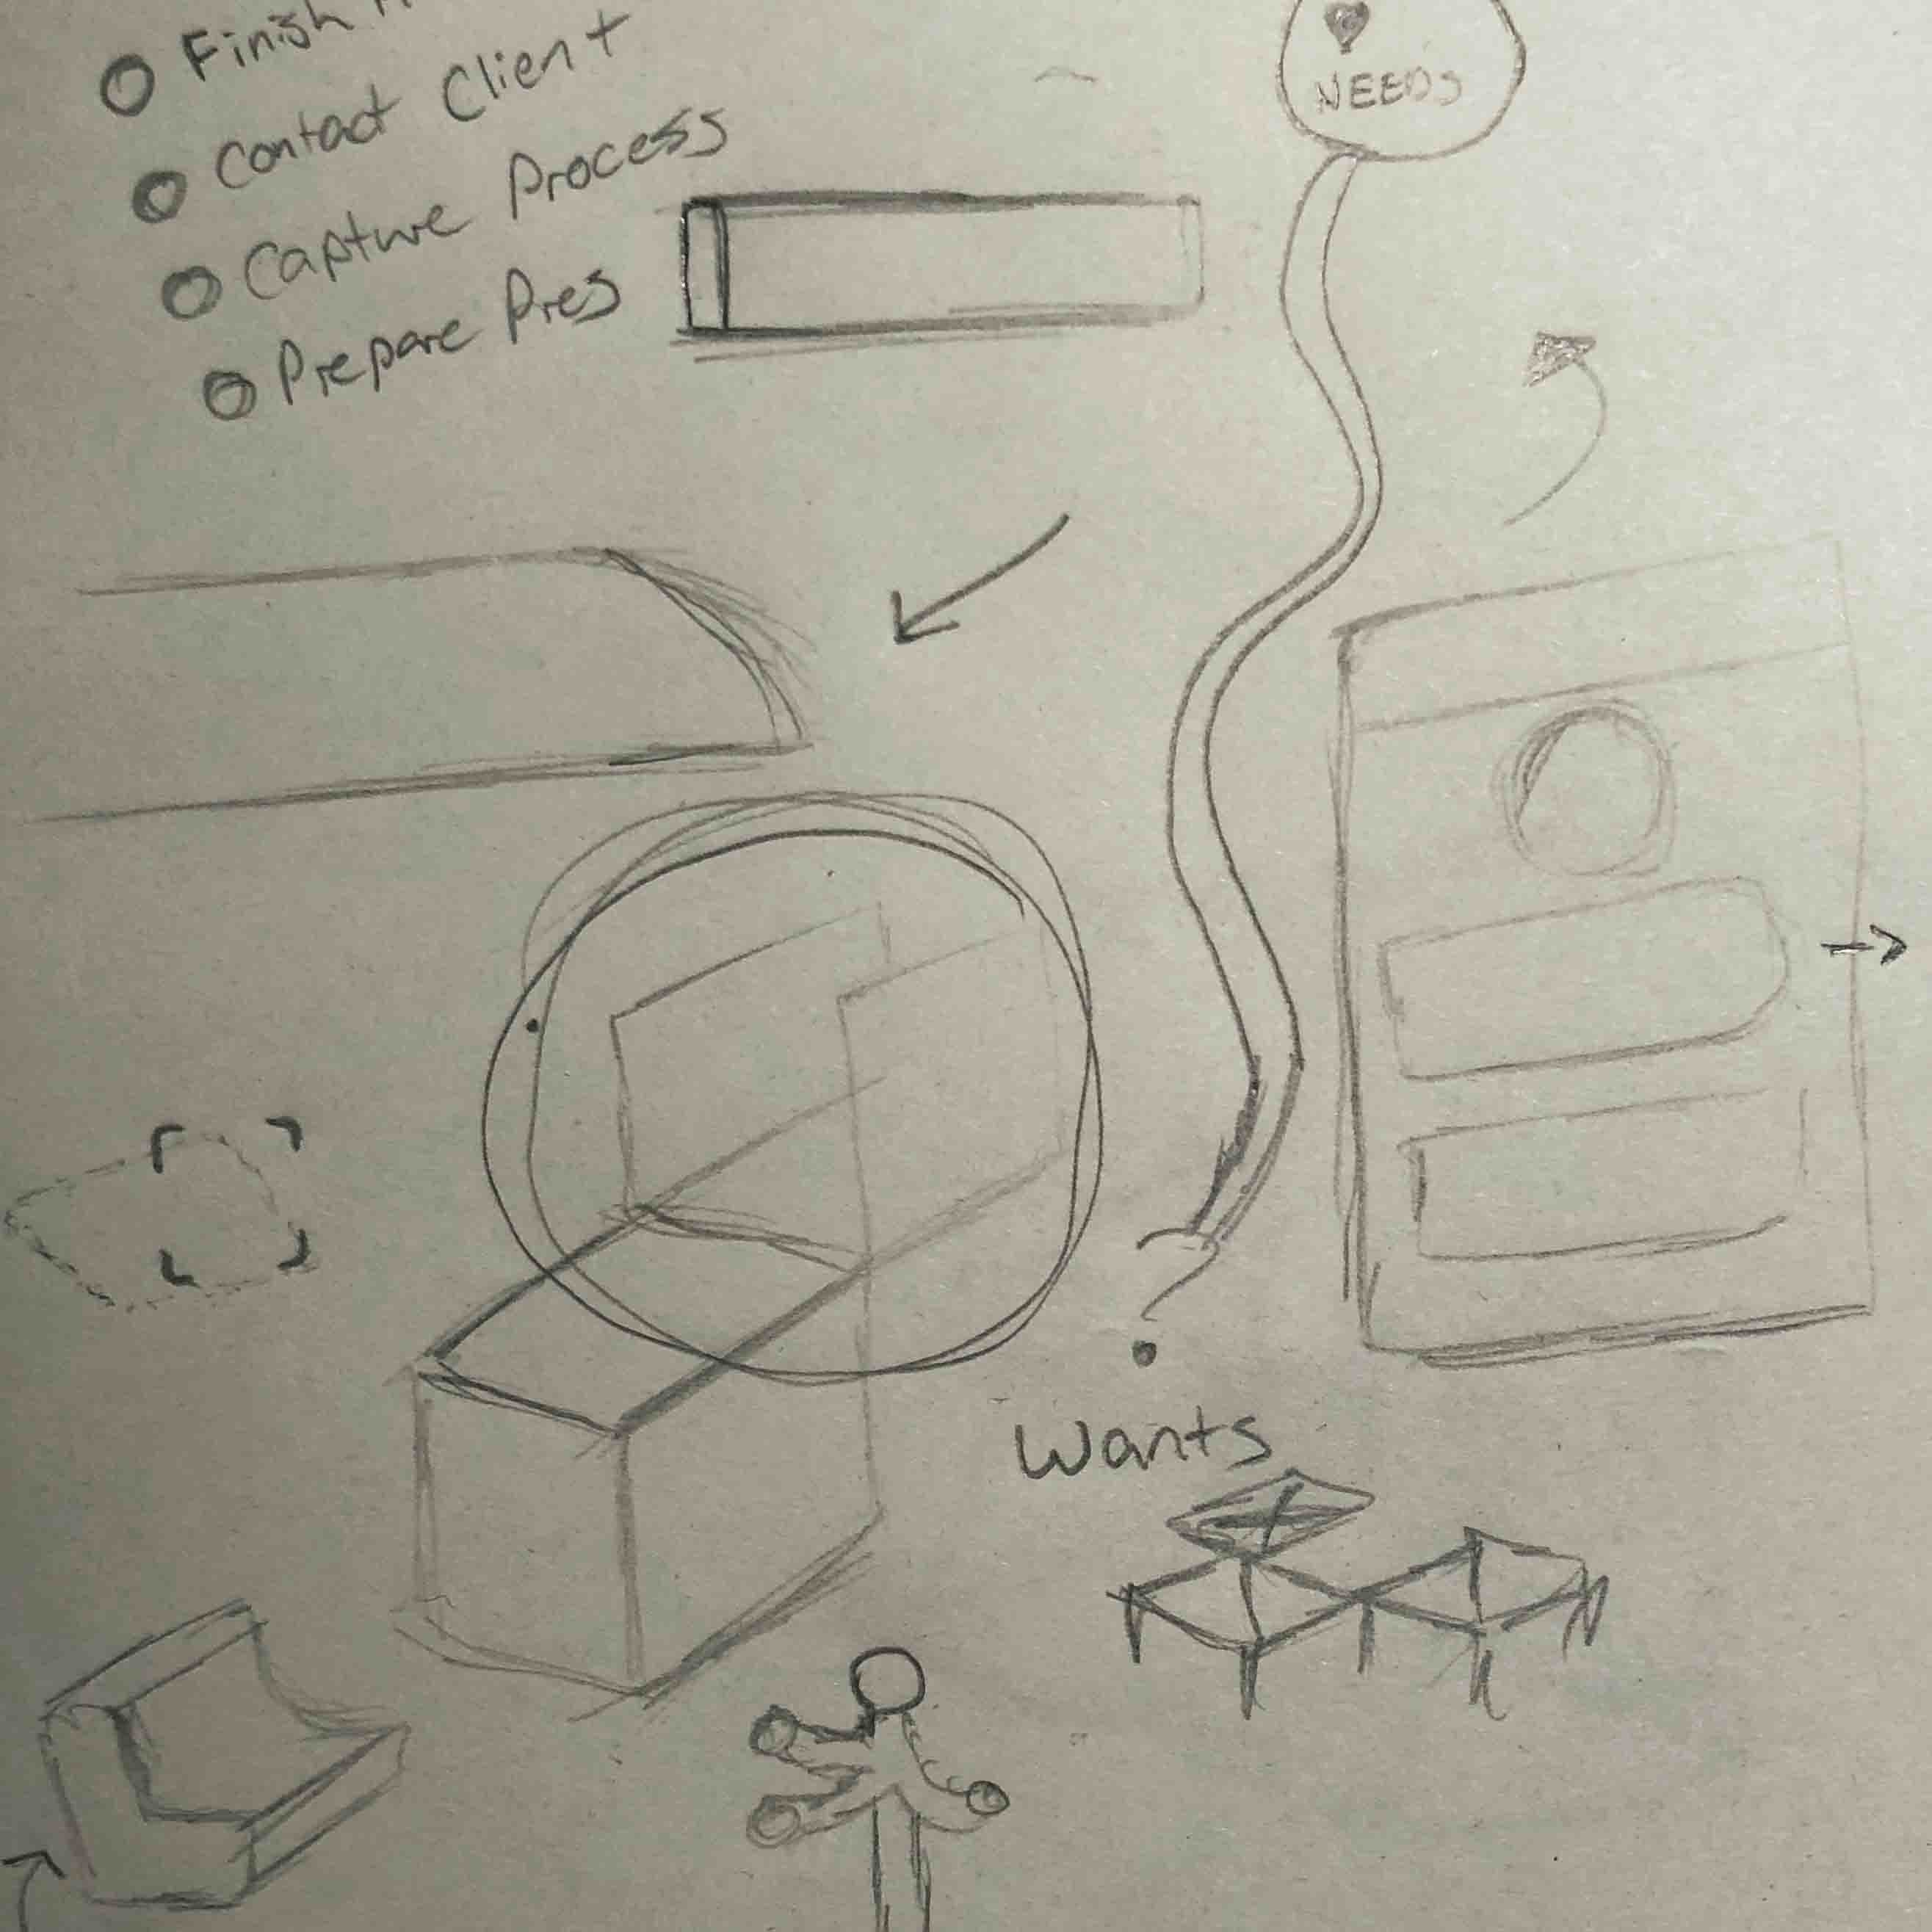 Finish
Contact Client
Capture Process
Prepare Pres
NEEDS
?
Wants